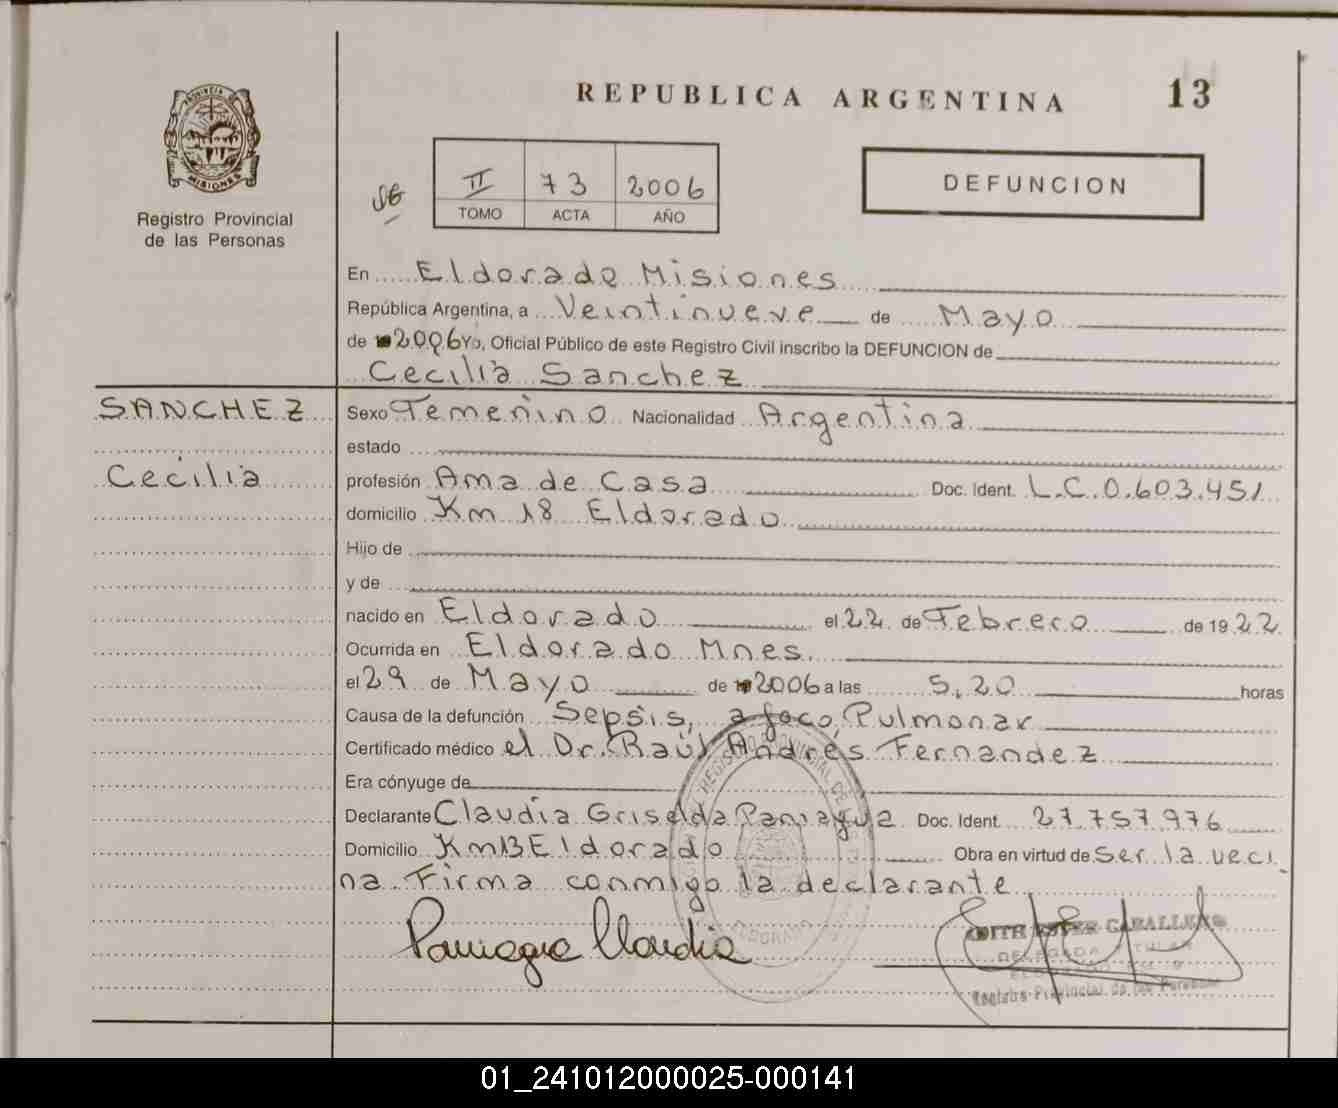 REPUBLICA ARGENTINA 13
PROVINCIA DE MISIONES
Registro Provincial
de las Personas
II 73 2006
TOMO ACTA AÑO
DEFUNCION
En Eldorado Misiones
República Argentina, a Veintinueve de Mayo
de 2006 Yo, Oficial Público de este Registro Civil inscribo la DEFUNCION de
Cecilia Sanchez
SANCHEZ
Cecilia
Sexo Femenino Nacionalidad Argentina
estado
profesión Ama de Casa Doc. Ident. L.C.0.603.451
domicilio Km 18 Eldorado
Hijo de
y de
nacido en Eldorado el 22 de Febrero de 1922
Ocurrida en Eldorado Mnes.
el 29 de Mayo de 2006 a las 5,20 horas
Causa de la defunción Sepsis, a foco Pulmonar
Certificado médico el Dr. Raúl Andrés Fernandez
Era cónyuge de
Declarante Claudia Griselda Paniagua Doc. Ident. 27.757.976
Domicilio Km Eldorado Obra en virtud de Ser la veci
na. Firma conmigo la declarante
Paniagua Claudia
EDITH ESTER CABALLERO
DELEGADA TITULAR
Registro Provincial de las Personas
01_241012000025-000141